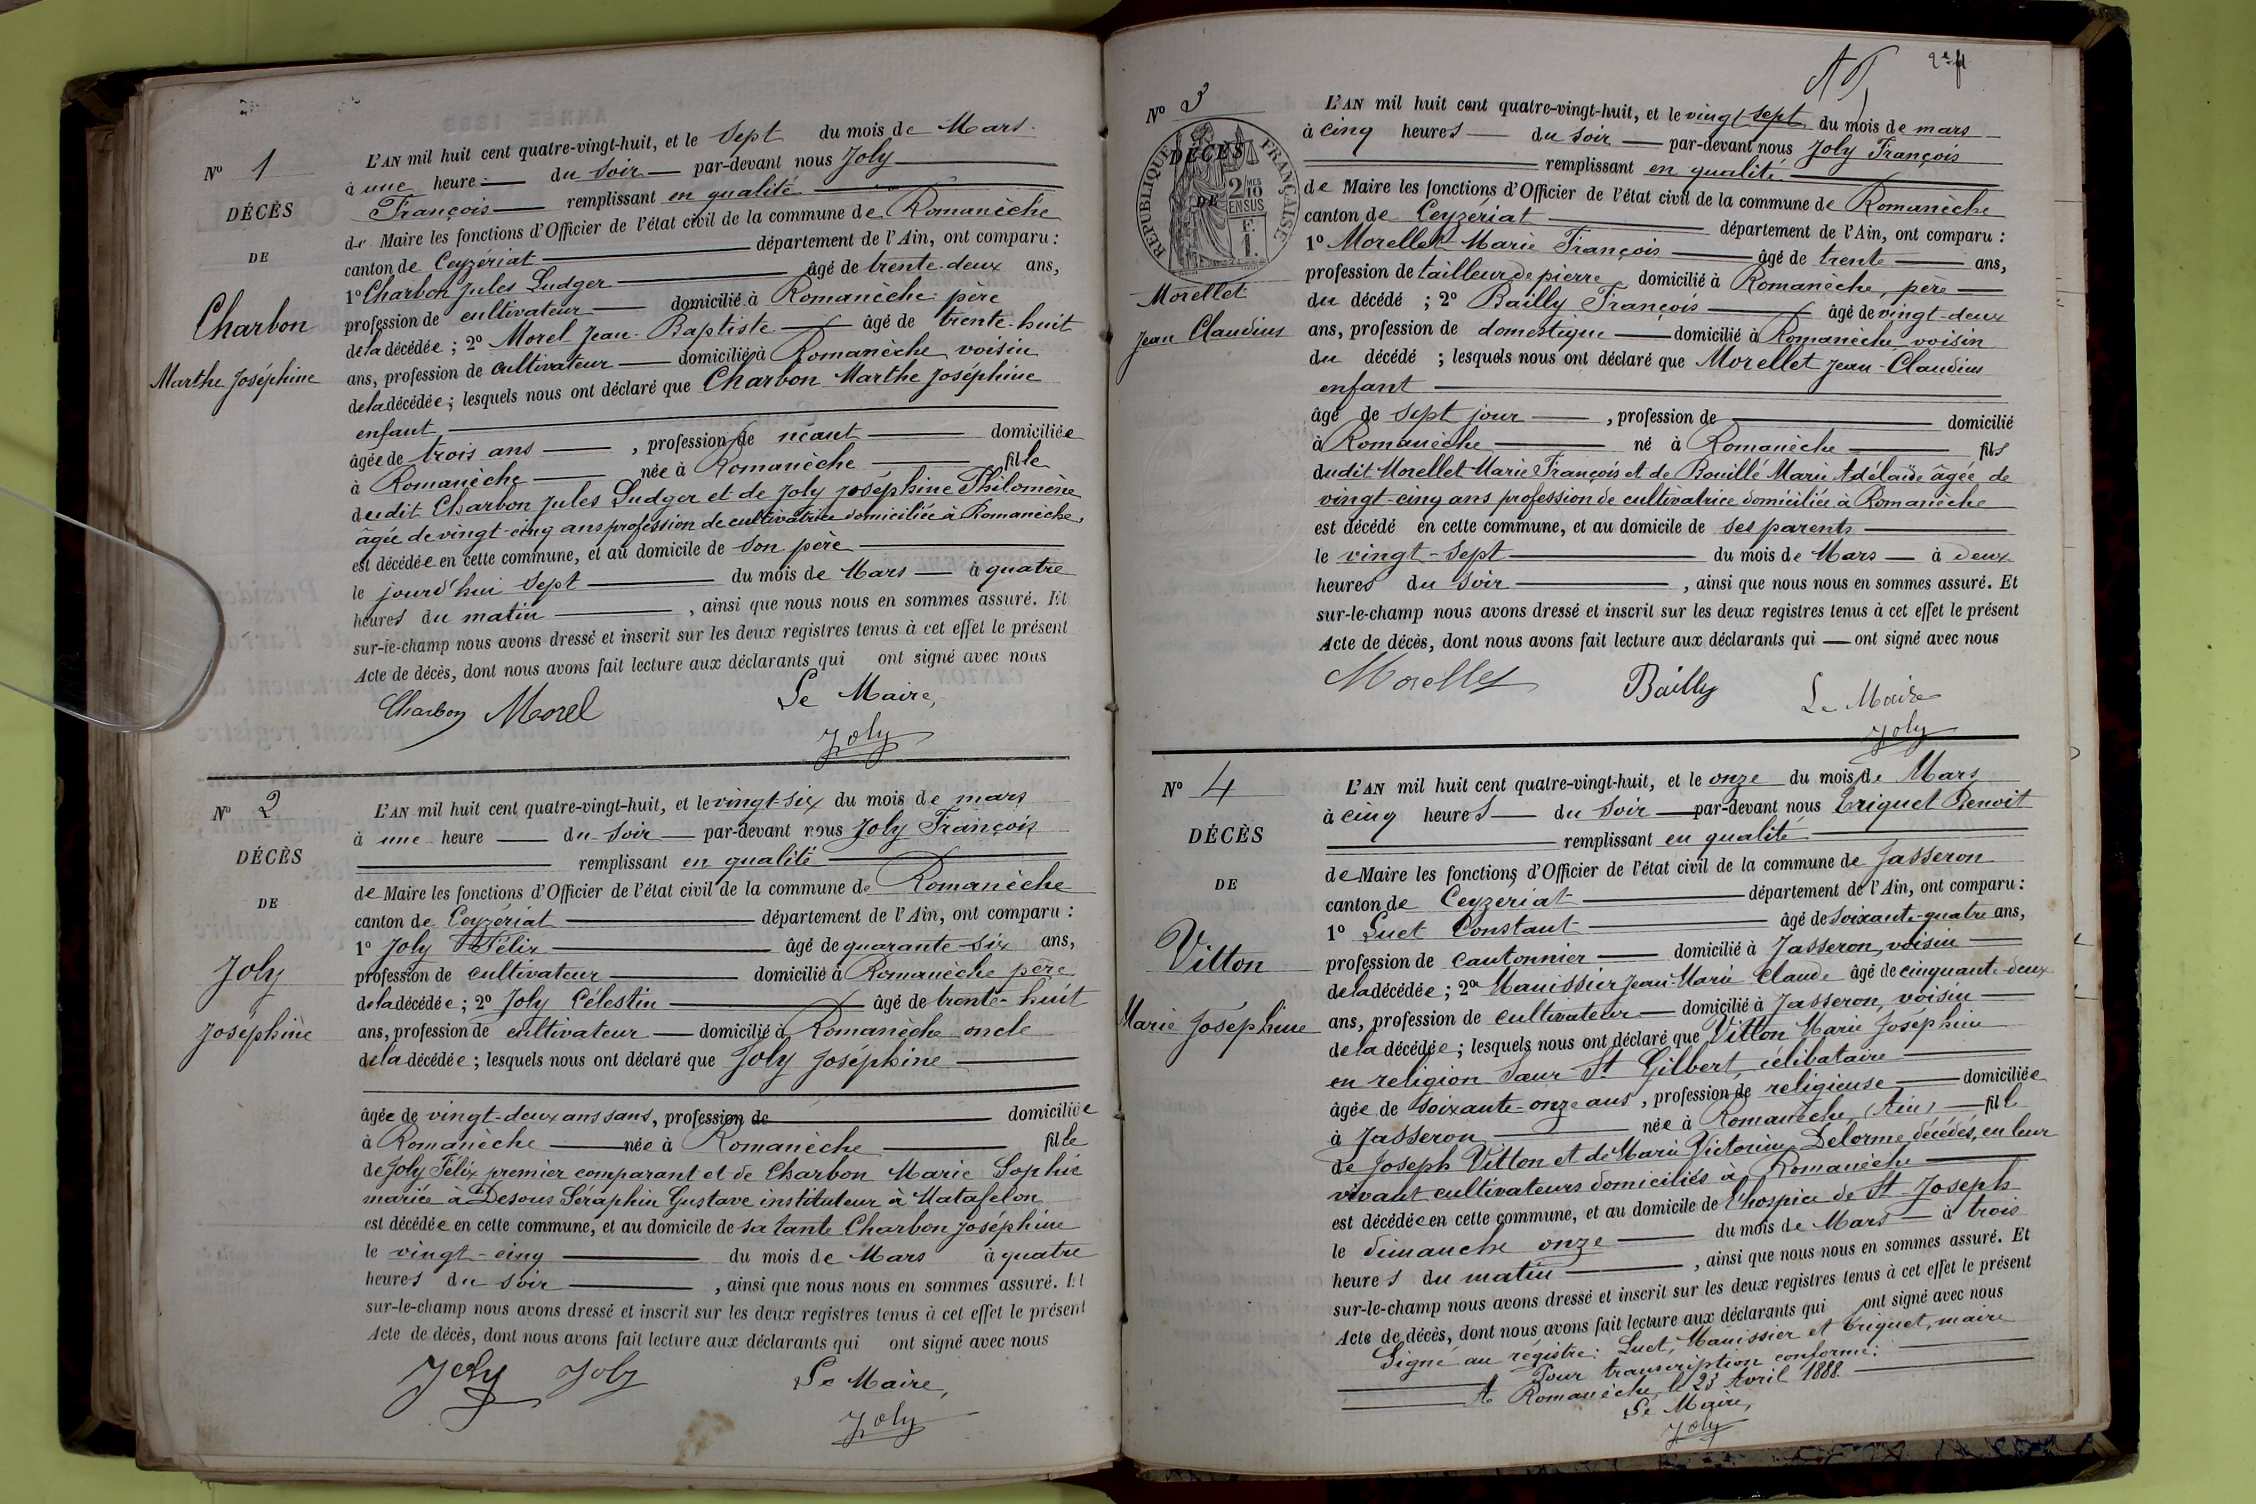 Nº 1
DÉCÈS
DE
Charbon
Marthe Joséphine
L'AN mil huit cent quatre-vingt-huit, et le Sept du mois de Mars
à une heure du soir par-devant nous Joly
François remplissant en qualité
de Maire les fonctions d'Officier de l'état civil de la commune de Romanèche
canton de Ceyzériat département de l'Ain, ont comparu :
1º Charbon Jules Ludger âgé de trente-deux ans,
profession de cultivateur domicilié à Romanèche père
de la décédée ; 2º Morel Jean-Baptiste âgé de trente-huit
ans, profession de cultivateur domicilié à Romanèche voisin
de la décédée ; lesquels nous ont déclaré que Charbon Marthe Joséphine
enfant
âgée de trois ans , profession de néant domiciliée
à Romanèche née à Romanèche fille
dudit Charbon Jules Ludger et de Joly Joséphine Philomène
âgée de vingt-cinq ans profession de cultivatrice domiciliée à Romanèche,
est décédée en cette commune, et au domicile de son père
le jourd'hui Sept du mois de Mars à quatre
heures du matin , ainsi que nous nous en sommes assuré. Et
sur-le-champ nous avons dressé et inscrit sur les deux registres tenus à cet effet le présent
Acte de décès, dont nous avons fait lecture aux déclarants qui ont signé avec nous
Charbon Morel Le Maire,
Joly
Nº 2
DÉCÈS
DE
Joly
Joséphine
L'AN mil huit cent quatre-vingt-huit, et le vingt-six du mois de mars
à une heure du soir par-devant nous Joly François
remplissant en qualité
de Maire les fonctions d'Officier de l'état civil de la commune de Romanèche
canton de Ceyzériat département de l'Ain, ont comparu :
1º Joly Félix âgé de quarante-six ans,
profession de cultivateur domicilié à Romanèche père
de la décédée ; 2º Joly Célestin âgé de trente-huit
ans, profession de cultivateur domicilié à Romanèche oncle
de la décédée ; lesquels nous ont déclaré que Joly Joséphine
âgée de vingt-deux ans sans, profession de domiciliée
à Romanèche née à Romanèche fille
de Joly Félix premier comparant et de Charbon Marie Sophie
mariée à Desous Séraphin Gustave instituteur à Matafelon
est décédée en cette commune, et au domicile de sa tante Charbon Joséphine
le vingt-cinq du mois de Mars à quatre
heures du soir , ainsi que nous nous en sommes assuré. Et
sur-le-champ nous avons dressé et inscrit sur les deux registres tenus à cet effet le présent
Acte de décès, dont nous avons fait lecture aux déclarants qui ont signé avec nous
Joly Joly Le Maire,
Joly
Nº 3
DÉCÈS
DE
RÉPUBLIQUE FRANÇAISE
2/10 EN SUS
Morellet
Jean Claudius
L'AN mil huit cent quatre-vingt-huit, et le vingt sept du mois de mars
à cinq heures du soir par-devant nous Joly François
remplissant en qualité
de Maire les fonctions d'Officier de l'état civil de la commune de Romanèche
canton de Ceyzériat département de l'Ain, ont comparu :
1º Morellet Marie François âgé de trente ans,
profession de tailleur de pierre domicilié à Romanèche, père
du décédé ; 2º Bailly François âgé de vingt-deux
ans, profession de domestique domicilié à Romanèche voisin
du décédé ; lesquels nous ont déclaré que Morellet Jean-Claudius
enfant
âgé de sept jour , profession de domicilié
à Romanèche né à Romanèche fils
dudit Morellet Marie François et de Bouillé Marie Adélaïde âgée de
vingt-cinq ans profession de cultivatrice domiciliée à Romanèche
est décédé en cette commune, et au domicile de ses parents
le vingt-sept du mois de Mars à deux
heures du soir , ainsi que nous nous en sommes assuré. Et
sur-le-champ nous avons dressé et inscrit sur les deux registres tenus à cet effet le présent
Acte de décès, dont nous avons fait lecture aux déclarants qui ont signé avec nous
Morellet Bailly Le Maire
Joly
Nº 4
DÉCÈS
DE
Vitton
Marie Joséphine
L'AN mil huit cent quatre-vingt-huit, et le onze du mois de Mars
à cinq heures du soir par-devant nous Triquet Benoit
remplissant en qualité
de Maire les fonctions d'Officier de l'état civil de la commune de Jasseron
canton de Ceyzériat département de l'Ain, ont comparu :
1º Luet Constant âgé de soixante-quatre ans,
profession de cantonnier domicilié à Jasseron, voisin
de la décédée ; 2º Manissier Jean-Marie Claude âgé de cinquante-deux
ans, profession de cultivateur domicilié à Jasseron, voisin
de la décédée ; lesquels nous ont déclaré que Vitton Marie Joséphine
en religion Sœur St Gilbert, célibataire
âgée de soixante-onze ans , profession de religieuse domiciliée
à Jasseron née à Romanèche (Ain) fille
de Joseph Vitton et de Marie Victorine Delorme, décédés, en leur
vivant cultivateurs domiciliés à Romanèche
est décédée en cette commune, et au domicile de l'hospice de St Joseph
le dimanche onze du mois de Mars à trois
heures du matin , ainsi que nous nous en sommes assuré. Et
sur-le-champ nous avons dressé et inscrit sur les deux registres tenus à cet effet le présent
Acte de décès, dont nous avons fait lecture aux déclarants qui ont signé avec nous
Signé au registre : Luet, Manissier et Triquet, maire
Pour transcription conforme :
A Romanèche, le 23 Avril 1888
Le Maire,
Joly